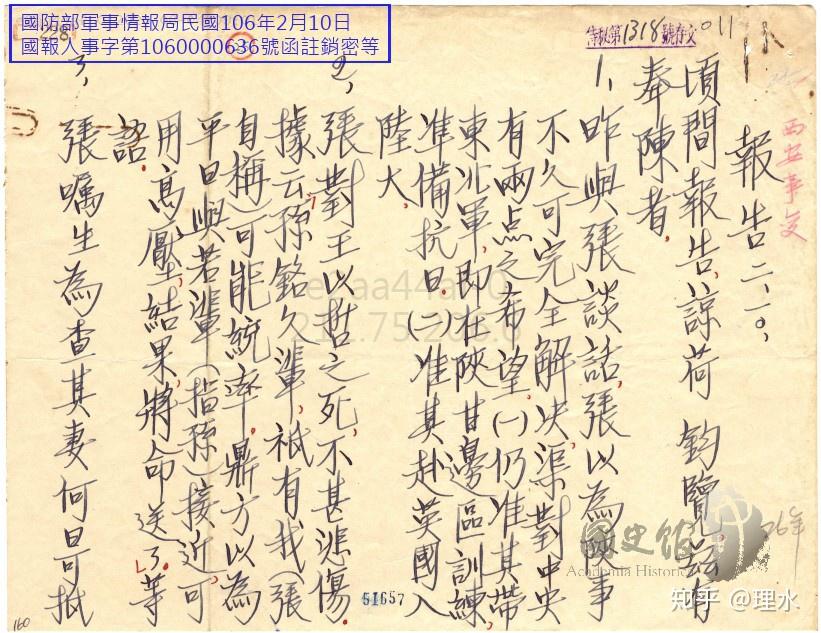 國防部軍事情報局民國106年2月10日
國報人事字第1060000636號函註銷密等
第1318號
011
西安事变
報告 二、一〇、
頃間報告、諒荷 鈞覽、茲有
奉陳者、
1、昨與張談話張以為陝事
不久可完全解決、渠對中央
有兩点之希望、(一)仍准其帶
東北軍、即在陝甘邊區訓練、
准備抗日、(二)准其赴英國入
陸大、
2、張對王以哲之死、不甚悲傷、
據云、孫銘久輩、祇有我(張
自稱)可能統率、鼎方以為
平日與若輩(指孫)接近、可
用高壓、結果將命送了等
語、
3、張囑生為查其妻何日可抵
26年
51657
160
國史館
Academia Historica
知乎 @理水